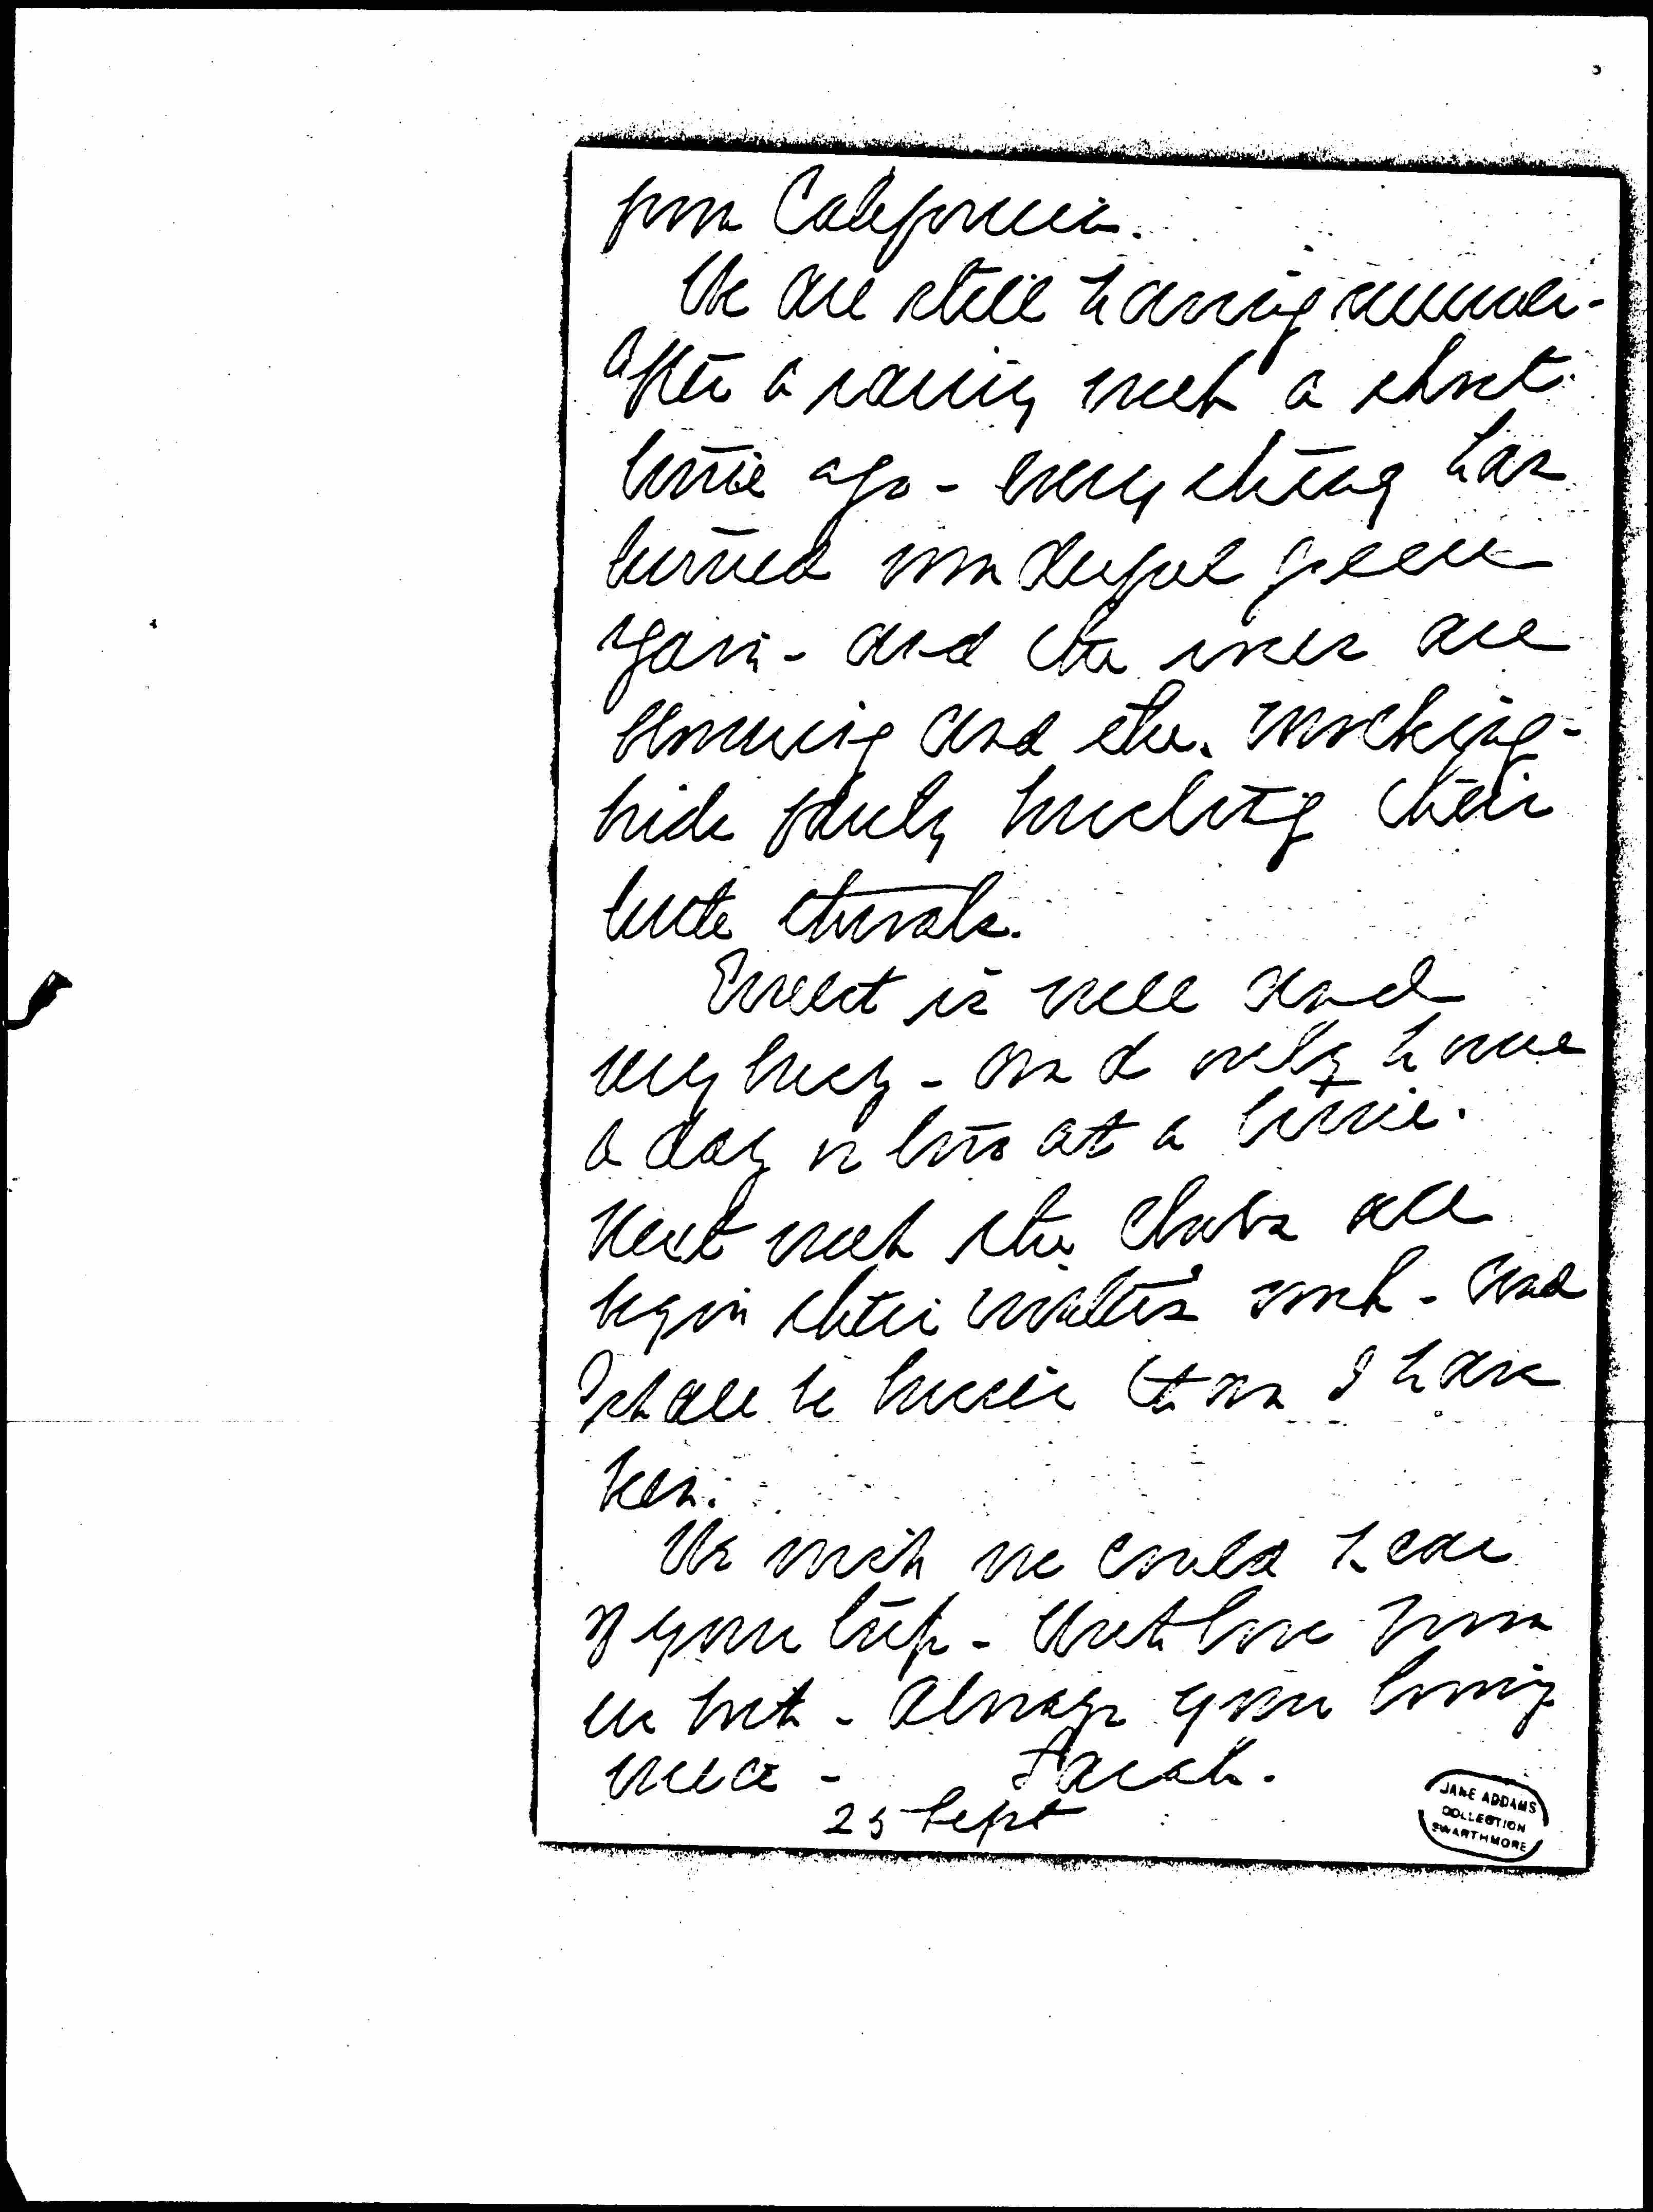 from California.
We are still having summer -
After a rainy week a short
time ago - every thing has
turned wonderful green
again - and the roses are
blooming and the mocking-
birds fairly bursting their
little throats.
Ernest is well and
very busy - and only home
a day or two at a time.
Next week the Clubs all
begin their winter's work - and
I shall be busier than I have
been.
We wish we could hear
of your trip - With love from
us both - Always your loving
niece - Sarah.
25 Sept
JANE ADDAMS
COLLECTION
SWARTHMORE